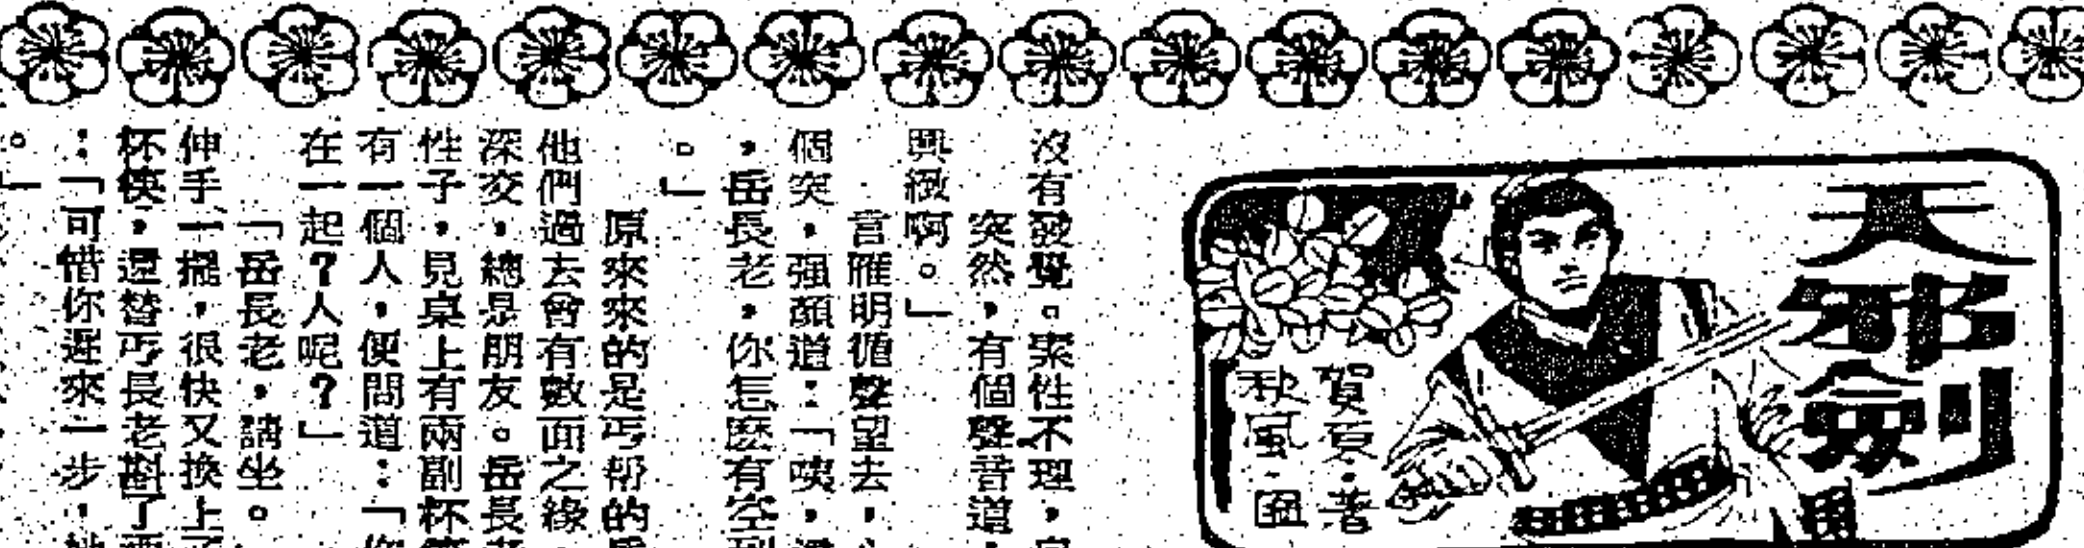 天邪劍
賀夏·著
秋風·圖
沒有發覺。索性不理，
突然，有個聲音道：
興緻啊。」
言雁明循聲望去，心
個突，强顏道：「咦，
，岳長老，你怎麽有空到
。」
原來來的是丐幫的
他們過去曾有數面之緣，
深交，總是朋友。岳長老
性子，見桌上有兩副杯筷
有一個人，便問道：「你
在一起？人呢？」
「岳長老，請坐。
伸手一擺，很快又換上了
杯筷，還替丐長老斟了
：「可惜你遲來一步，她
。」